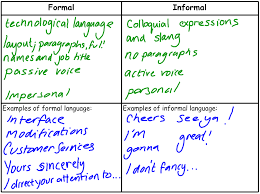 Formal
technological language
layout; paragraphs, full
names and job title
passive voice
Impersonal
Informal
Colloquial expressions
and slang
no paragraphs
active voice
personal
Examples of formal language:
Interface
Modifications
Customer Services
Yours sincerely
I direct your attention to...
Examples of informal language:
Cheers see ya!
I'm great!
gonna
I don't fancy...